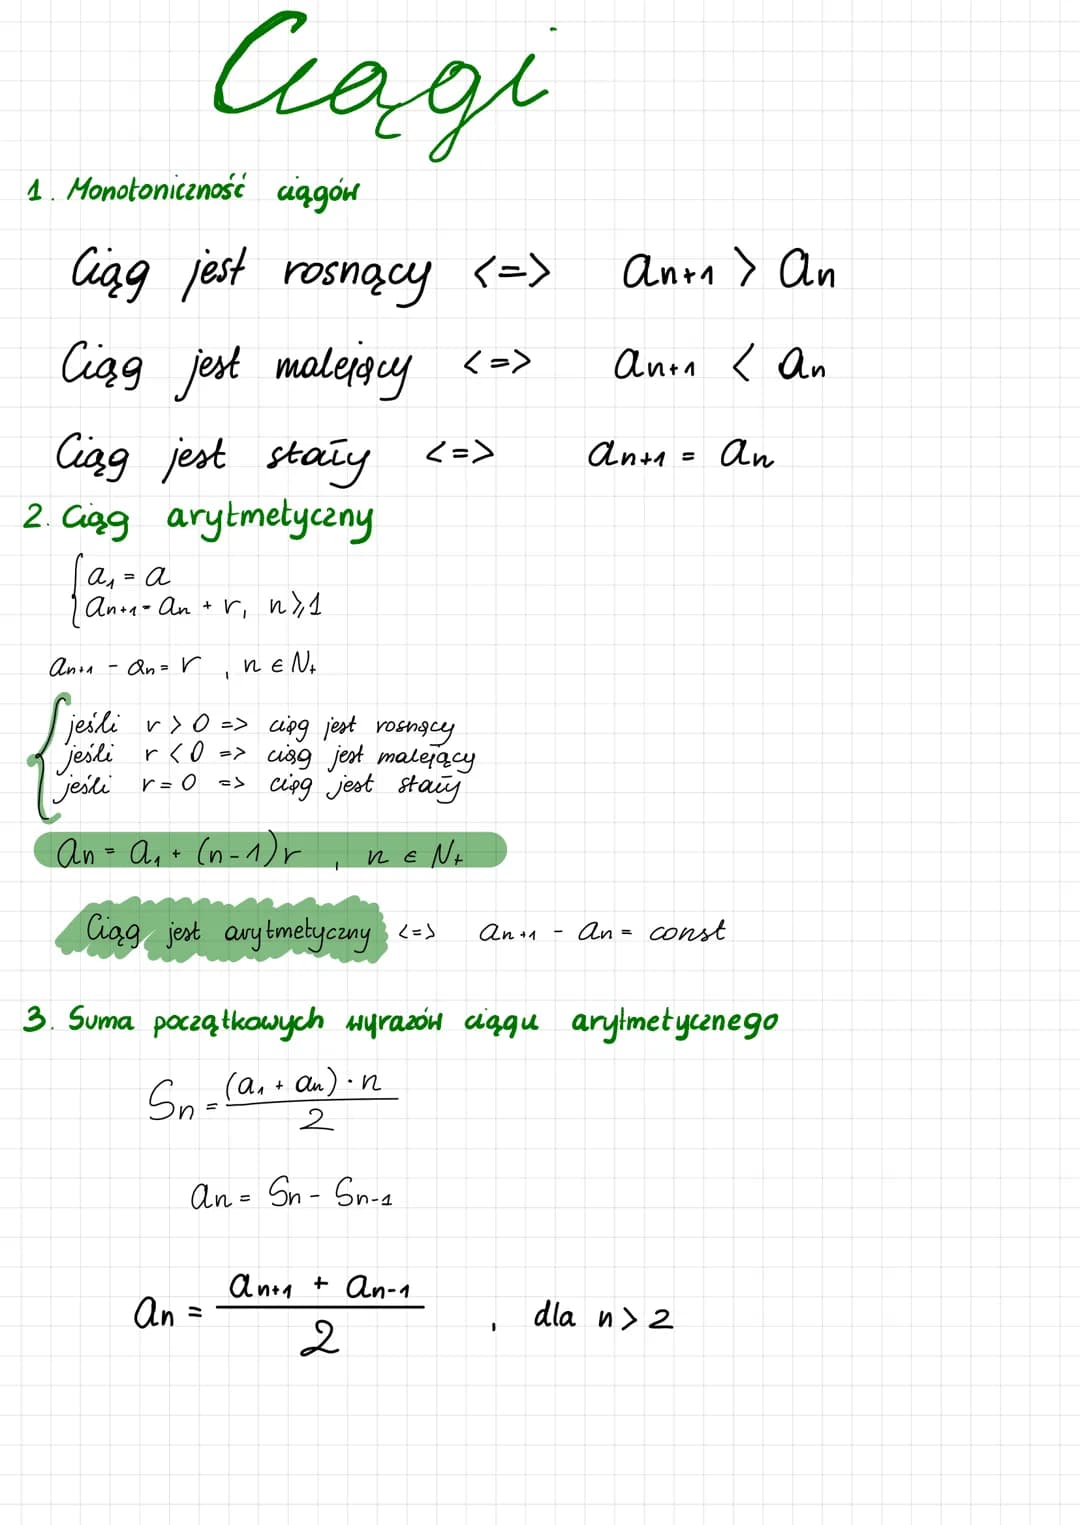 Ciągi
1. Monotoniczność ciągów
Ciąg jest rosnący <=> an+1 > an
Ciąg jest malejący <=> an+1 < an
Ciąg jest stały <=> an+1 = an
2. Ciąg arytmetyczny
{ a1 = a
an+1 = an + r, n ⩾ 1
an+1 - an = r , n ∈ N+
{ jeśli r > 0 => ciąg jest rosnący
jeśli r < 0 => ciąg jest malejący
jeśli r = 0 => ciąg jest stały
an = a1 + (n-1)r , n ∈ N+
Ciąg jest arytmetyczny <=> an+1 - an = const
3. Suma początkowych wyrazów ciągu arytmetycznego
Sn = (a1 + an) · n / 2
an = Sn - Sn-1
an = an+1 + an-1 / 2 , dla n > 2